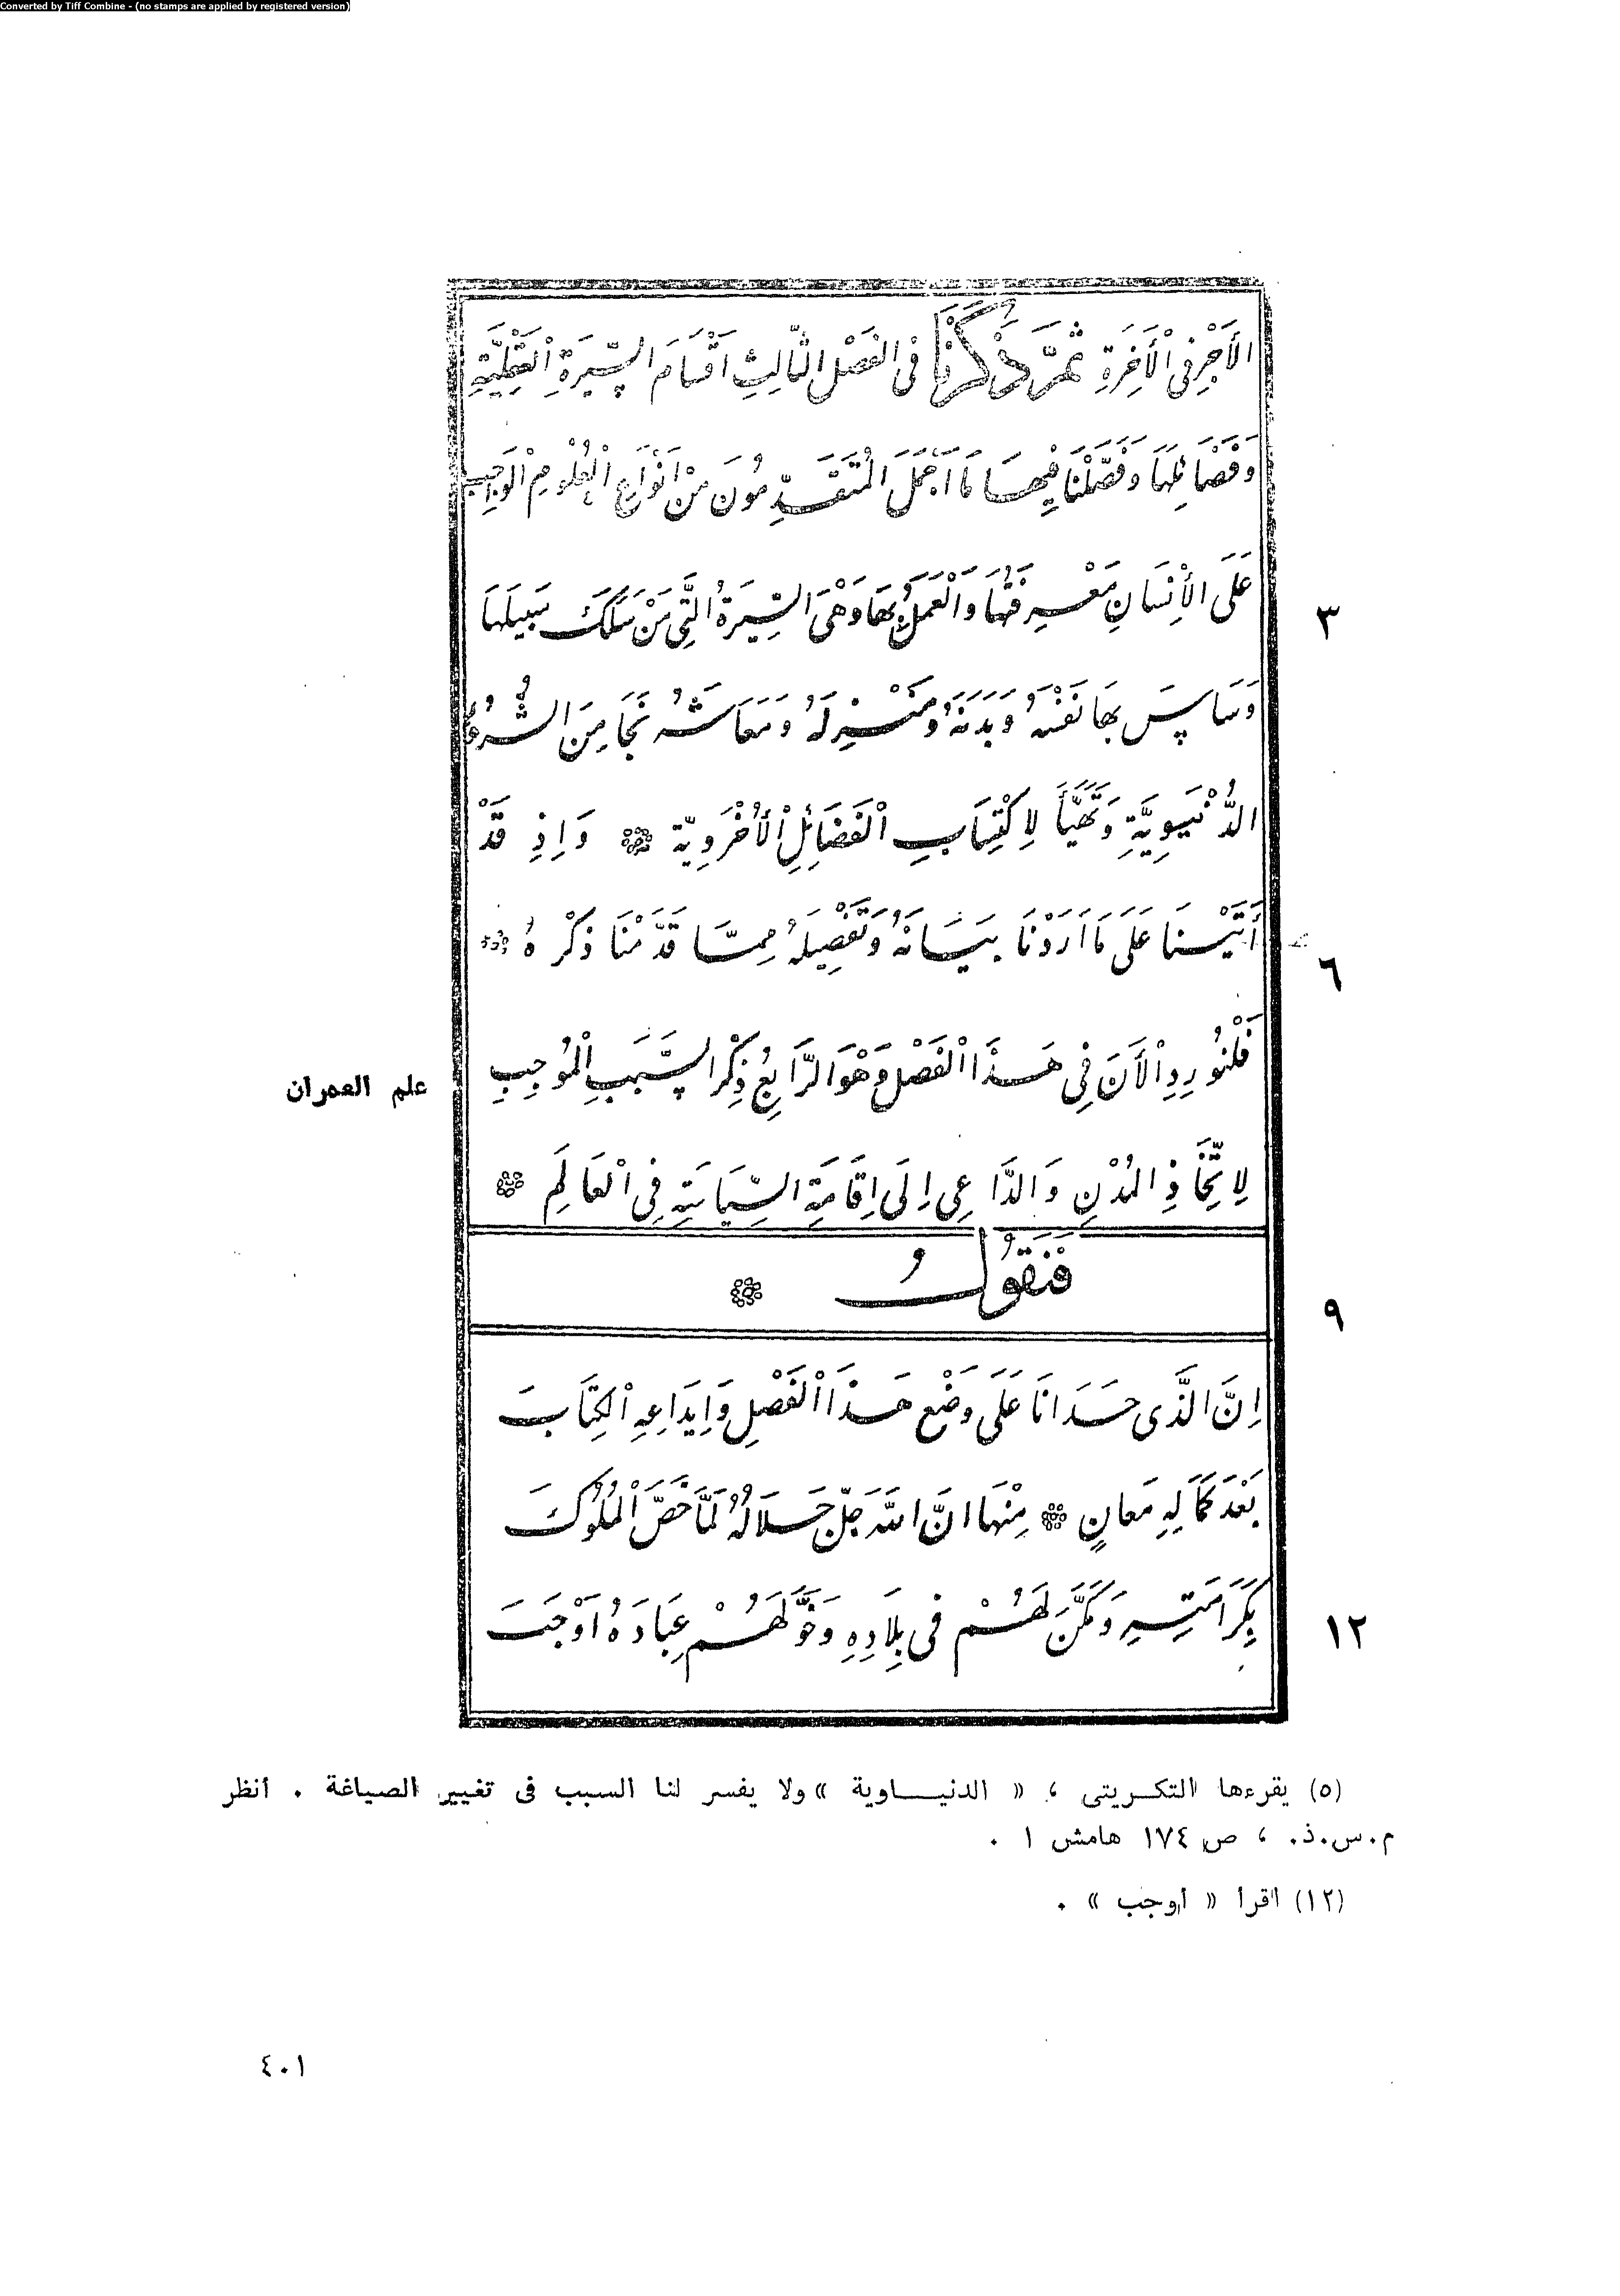 Converted by Tiff Combine - (no stamps are applied by registered version)
الأَجْرِ فِي الْأَخِرَةِ ثُمَّ ذَكَرْنَا فى الفَصْلِ الثَّالِثِ اَقْسَامَ السِّيرَةِ الْعَقْلِيَّةِ
وَفَضَائِلَهَا وَفَصَّلْنَا فِيهَا مَا اَجْمَلَ الْمُتَقَدِّمُونَ مِنْ اَنْوَاعِ الْعُلُومِ الْوَاجِبِ
عَلَى الْأِنْسَانِ مَعْرِفَتُهَا وَالْعَمَلُ بِهَا وَهْىَ السِّيَرَةُ الَّتِى مَنْ سَلَكَ سَبِيلَهَا
٣
وَسَاسَ بِهَا نَفْسَهُ وَبَدَنَهُ وَمَنْزِلَهُ وَمَعَاشَهُ نَجَا مِنَ الشُّرُورِ
الدُّنْيَوِيَّةِ وَتَهَيَّأَ لِاكْتِسَابِ الْفَضَائِلِ الْأُخْرَوِيَّة وَاِذِ قَدْ
أَتَيْنَا عَلَى مَا اَرَدْنَا بَيَانَهُ وَتَفْصِيلَهُ مِمَّا قَدَّمْنَا ذِكْرَهُ
٦
فَلْنُورِدِ الْأَنَ فِى هَذَا الْفَصْلِ وَهْوَ الرَّابِعُ ذِكْرَ السَّبَبِ الْمُوجِبِ
علم العمران
لِاتِّخَاذِ الْمُدْنِ وَالدَّاعِى اِلَى اِقَامَةِ السِّيَاسَةِ فِى الْعَالَمِ
فَنَقُولُ
٩
اِنَّ الَّذَّى حَدَانَا عَلَى وَضْعِ هَذَا الْفَصْلِ وَاِيَدَاعِهِ الْكِتَابَ
بَعْدَ كَمَالِهِ مَعَانٍ مِنْهَا اَنَّ اللهَ جَلَّ جَلَالُهُ لَمَّا خَصَّ الْمُلُوُكَ
بِكَرَامَتِهِ وَمَكَّنَ لَهُمْ فى بِلَادِهِ وَخَوَّلَهُمْ عِبَادَهُ اَوْجَبَ
١٢
(٥) يقرءها التكريتى ، « الدنياوية » ولا يفسر لنا السبب فى تغيير الصياغة . أنظر
م.س.ذ. ، ص ١٧٤ هامش ١ .
(١٢) اقرأ « أوجب » .
٤٠١